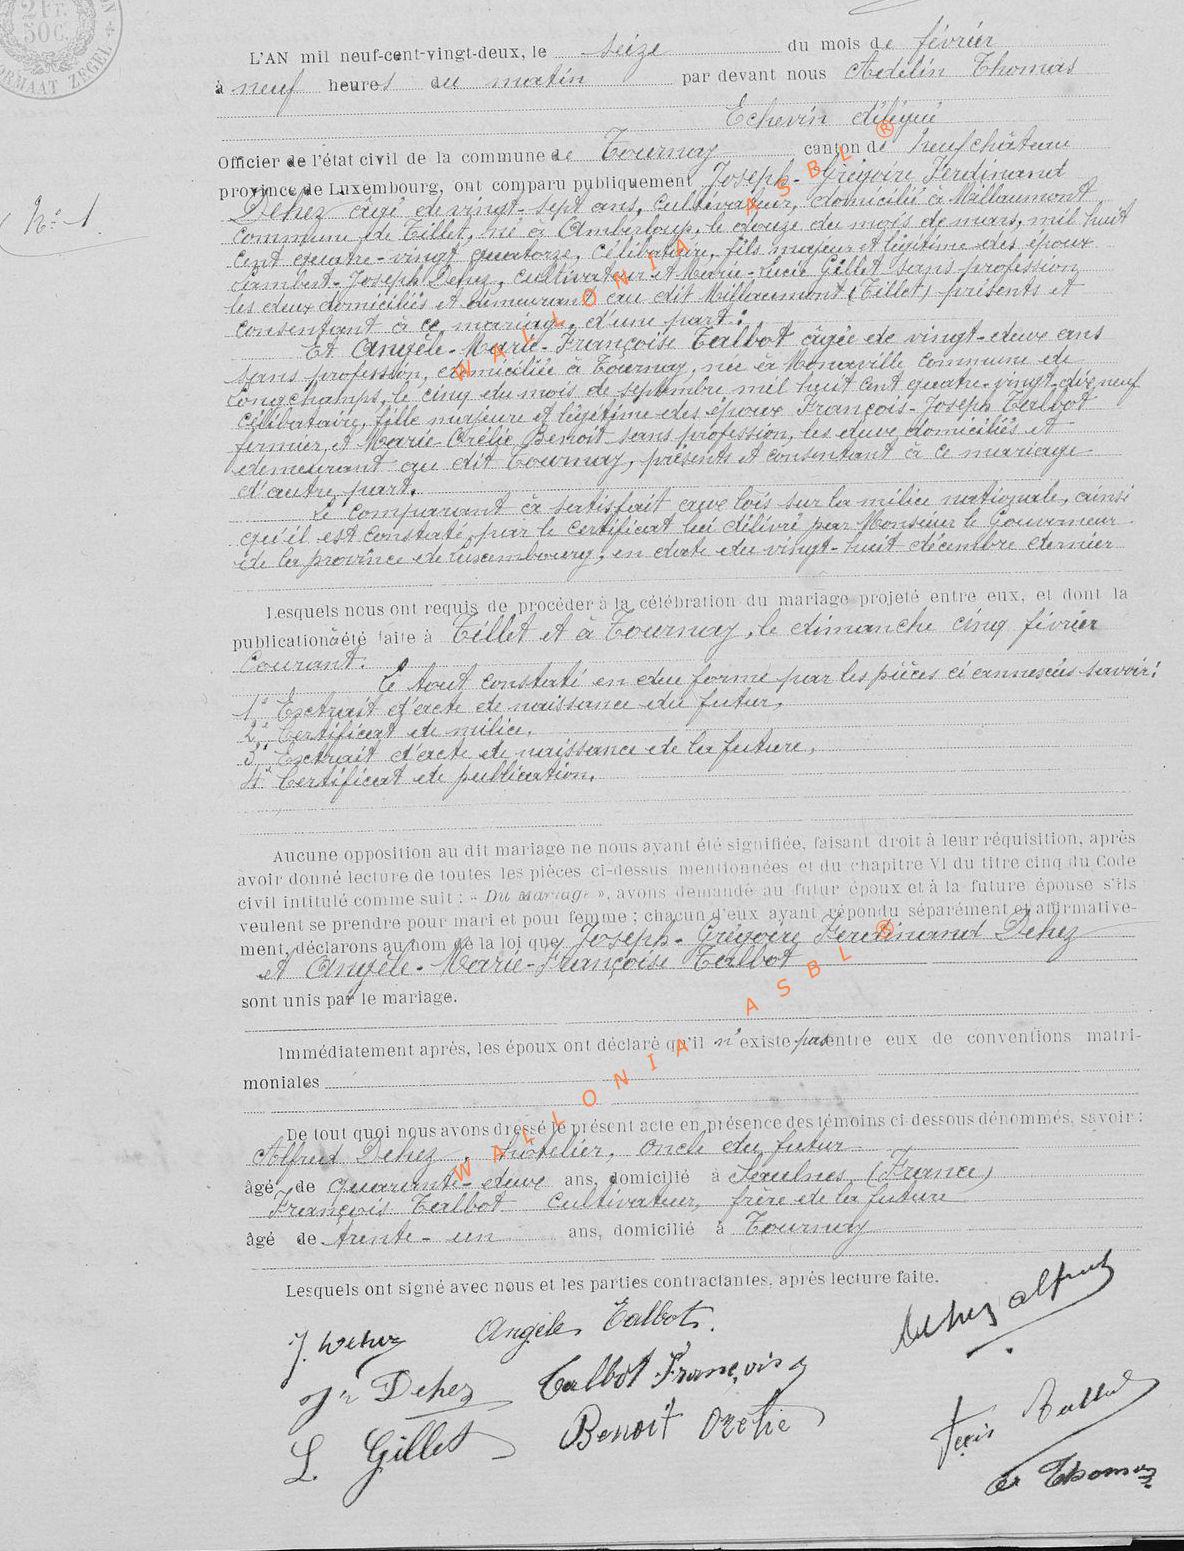 2 Fr.
50C.
FORMAAT ZEGEL
L'AN mil neuf-cent-vingt-deux, le seize du mois de février
à neuf heures du matin par devant nous Adelin Thomas
Echevin délégué
Officier de l'état civil de la commune de Tournay canton de Neufchâteau
province de Luxembourg, ont comparu publiquement Joseph-Grégoire Ferdinand
N° 1.
Dehez âgé de vingt-sept ans, cultivateur, domicilié à Millaumont
commune de Tillet, né à Amberloup, le douze du mois de mars, mil huit
cent quatre-vingt quatorze, célibataire, fils majeur et légitime des époux
Lambert-Joseph Dehez, cultivateur et Marie-Lucie Gillet sans profession
les deux domiciliés et demeurant au dit Millaumont (Tillet) présents et
consentant à ce mariage, d'une part:
Et Angèle-Marie-Françoise Talbot âgée de vingt-deux ans
sans profession, domiciliée à Tournay, née à Monaville commune de
Longchamps, le cinq du mois de septembre mil huit cent quatre-vingt-dix neuf
célibataire, fille majeure et légitime des époux François-Joseph Talbot
fermier, et Marie-Orélie Benoit sans profession, les deux domiciliés et
demeurant au dit Tournay, présents et consentant à ce mariage
d'autre part.
Le comparant à satisfait aux lois sur la milice nationale, ainsi
qu'il est constaté par le certificat lui délivré par Monsieur le Gouverneur
de la province de Luxembourg, en date du vingt-huit décembre dernier
Lesquels nous ont requis de procéder à la célébration du mariage projeté entre eux, et dont la
publication à été faite à Tillet et à Tournay, le dimanche cinq février
courant.
Le tout constaté en due forme par les pièces ci annexées savoir:
1° Extrait d'acte de naissance du futur,
2° Certificat de milice,
3° Extrait d'acte de naissance de la future,
4° Certificat de publication.
Aucune opposition au dit mariage ne nous ayant été signifiée, faisant droit à leur réquisition, après
avoir donné lecture de toutes les pièces ci-dessus mentionnées et du chapitre VI du titre cinq du Code
civil intitulé comme suit : « Du Mariage », avons demandé au futur époux et à la future épouse s'ils
veulent se prendre pour mari et pour femme ; chacun d'eux ayant répondu séparément et affirmative-
ment, déclarons au nom de la loi que Joseph-Grégoire Ferdinand Dehez
et Angèle-Marie-Françoise Talbot
sont unis par le mariage.
Immédiatement après, les époux ont déclaré qu'il n'existe pas entre eux de conventions matri-
moniales
De tout quoi nous avons dressé le présent acte en présence des témoins ci dessous dénommés, savoir :
Alfred Dehez, hôtelier, oncle du futur
âgé de quarante-deux ans, domicilié à Saulnes (France)
François Talbot cultivateur, frère de la future
âgé de trente-un ans, domicilié à Tournay
Lesquels ont signé avec nous et les parties contractantes, après lecture faite.
J. Dehez Angèle Talbot. Dehez alfred
Dehez Talbot François
L. Gillet Benoit Orélie Talbot
Thomas
WALLONIA ASBL ®
WALLONIA ASBL ®